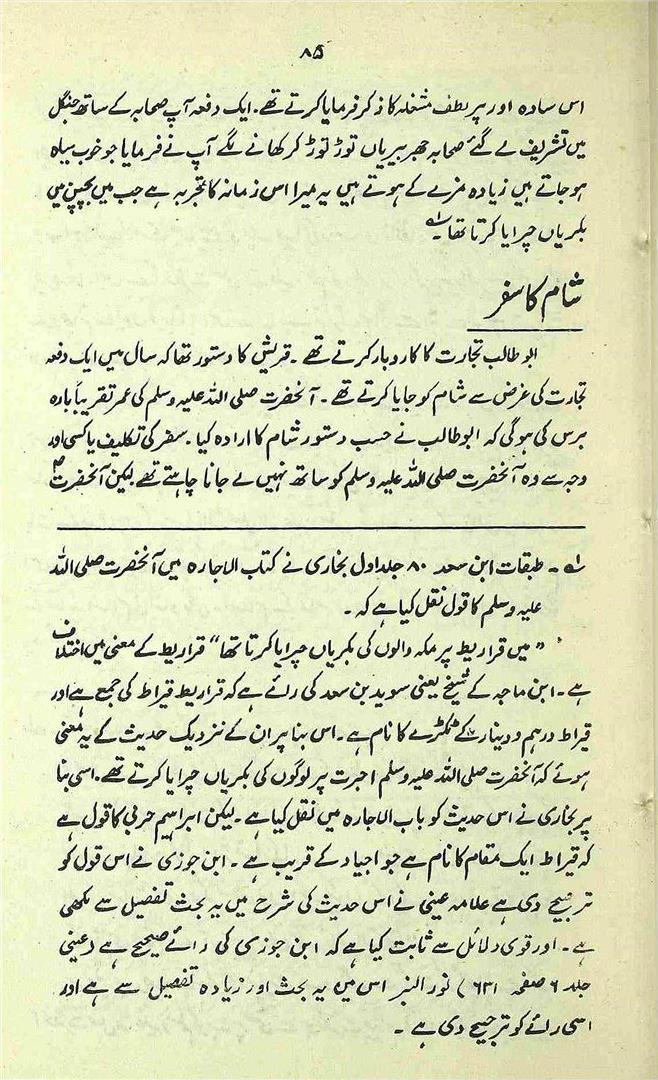 ۸۵
اس سادہ اور پر لطف مشغلہ کا ذکر فرمایا کرتے تھے۔ ایک دفعہ آپ صحابہ کے ساتھ جنگل
میں تشریف لے گئے صحابہ جھربیریاں توڑ توڑ کر کھانے لگے آپ نے فرمایا جو خوب سیاہ
ہو جاتے ہیں زیادہ مزے کے ہوتے ہیں یہ میرا اس زمانہ کا تجربہ ہے جب میں بچپن میں
بکریاں چرایا کرتا تھا۔ ؎۱
شام کا سفر
ابو طالب تجارت کا کاروبار کرتے تھے۔ قریش کا دستور تھا کہ سال میں ایک دفعہ
تجارت کی غرض سے شام کو جایا کرتے تھے۔ آنحضرت صلی اللہ علیہ وسلم کی عمر تقریباً بارہ
برس کی ہو گی کہ ابو طالب نے حسب دستور شام کا ارادہ کیا۔ سفر کی تکلیف یا کسی اور
وجہ سے وہ آنحضرت صلی اللہ علیہ وسلم کو ساتھ نہیں لے جانا چاہتے تھے لیکن آنحضرتؐ
؎۱۔ طبقات ابن سعد ۸۰ جلد اول بخاری نے کتاب الاجارہ میں آنحضرت صلی اللہ
علیہ وسلم کا قول نقل کیا ہے کہ۔
"میں قراریط پر مکہ والوں کی بکریاں چرایا کرتا تھا" قراریط کے معنی میں اختلاف
ہے۔ ابن ماجہ کے شیخ یعنی سوید بن سعد کی رائے ہے کہ قراریط قیراط کی جمع ہے اور
قیراط درہم و دینار کے ٹکڑے کا نام ہے۔ اس بنا پر ان کے نزدیک حدیث کے یہ معنی
ہوئے کہ آنحضرت صلی اللہ علیہ وسلم اجرت پر لوگوں کی بکریاں چرایا کرتے تھے۔ اسی بنا
پر بخاری نے اس حدیث کو باب الاجارہ میں نقل کیا ہے۔ لیکن ابراہیم حربی کا قول ہے
کہ قیراط ایک مقام کا نام ہے جو اجیاد کے قریب ہے۔ ابن جوزی نے اس قول کو
ترجیح دی ہے علامہ عینی نے اس حدیث کی شرح میں یہ بحث تفصیل سے لکھی
ہے۔ اور قوی دلائل سے ثابت کیا ہے کہ ابن جوزی کی رائے صحیح ہے (عینی
جلد ۶ صفحہ ۶۳۱) نور النبر اس میں یہ بحث اور زیادہ تفصیل سے ہے اور
اسی رائے کو ترجیح دی ہے۔